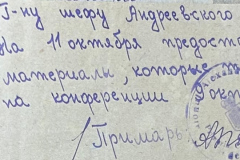 Г-ну шефу Андреевского
На 11 октября предоста
материалы, которые
на конференции окт
/ Примарь